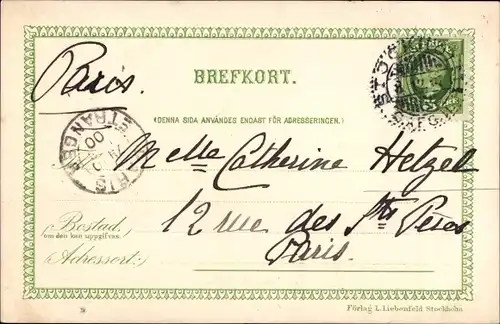 Paris.
BREFKORT.
(DENNA SIDA ANVÄNDES ENDAST FÖR ADRESSERINGEN.)
PARIS ETRANGER
00
5
Melle Catherine Hetzel
12 rue des Sts Peres
Paris.
Bostad
om den kan uppgifvas.
Adressort:
Förlag L. Liebenfeld Stockholm.